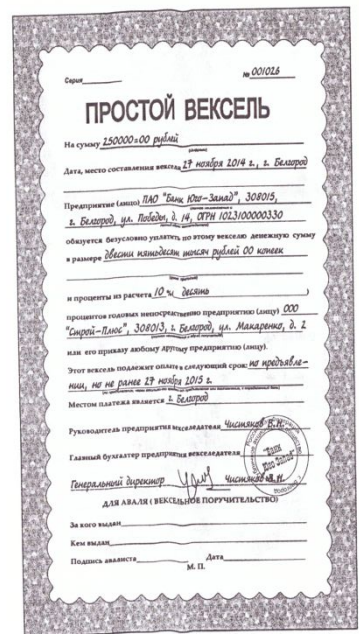 Серия
№ 001026
ПРОСТОЙ ВЕКСЕЛЬ
На сумму 250000=00 рублей
Дата, место составления векселя 27 ноября 2014 г., г. Белгород
Предприятие (лицо) ПАО "Банк Юго-Запад", 308015,
г. Белгород, ул. Победы, д. 14, ОГРН 1023100000330
обязуется безусловно уплатить по этому векселю денежную сумму
в размере двести пятьдесят тысяч рублей 00 копеек
и проценты из расчета 10 % десять )
процентов годовых непосредственно предприятию (лицу) ООО
"Строй-Плюс", 308013, г. Белгород, ул. Макаренко, д. 2
или его приказу любому другому предприятию (лицу).
Этот вексель подлежит оплате в следующий срок: по предъявле-
нии, но не ранее 27 ноября 2015 г.
Местом платежа является г. Белгород
Руководитель предприятия векселедателя Чистяков В.Н.
Главный бухгалтер предприятия векселедателя
"Банк
Юго-Запад"
Генеральный директор Чистяков В.Н.
ДЛЯ АВАЛЯ ( ВЕКСЕЛЬНОЕ ПОРУЧИТЕЛЬСТВО)
За кого выдан
Кем выдан
Подпись авалиста Дата
М. П.